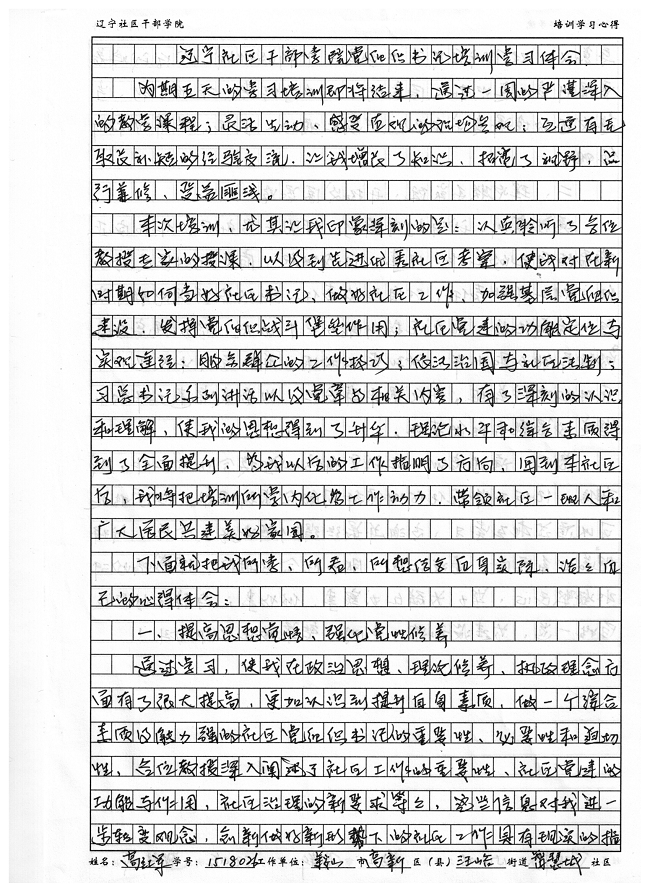 辽宁社区干部学院 培训学习心得
辽宁社区干部学院党组织书记培训学习体会
为期五天的学习培训即将结束,通过一周的严谨深入
的教学课程;灵活生动、感受直观的现场参观;互通有无
取长补短的经验交流,让我增长了知识、拓宽了视野,品
行兼修、受益匪浅。
本次培训,尤其让我印象深刻的是:认真聆听了各位
教授专家的授课,以及到先进优秀社区考察,使我对在新
时期如何当好社区书记、做好社区工作、加强基层党组织
建设、发挥党组织战斗堡垒作用;社区党建的功能定位与
实现途径;服务群众的工作技巧;依法治国与社区法制;
习总书记系列讲话以及党章的相关内容,有了深刻的认识
和理解,使我的思想得到了升华,理论水平和综合素质得
到了全面提升,为我以后的工作指明了方向,回到本社区
后,我将把培训所学内化为工作动力,带领社区一班人和
广大居民共建美好家园。
下面就把我所学、所看、所想结合自身实际,谈谈自
己的心得体会:
一、提高思想觉悟、强化党性修养
通过学习,使我在政治思想、理论修养、执政理念方
面有了很大提高,更加认识到提升自身素质,做一个综合
素质及能力强的社区党组织书记的重要性、必要性和迫切
性,各位教授深入阐述了社区工作的重要性、社区党建的
功能与作用,社区治理的新要求等等,这些信息对我进一
步转变观念,创新做好新形势下的社区工作具有现实的指
姓名: 学号:1518026 工作单位:鞍山 市 高新 区(县) 街道 智慧城 社区